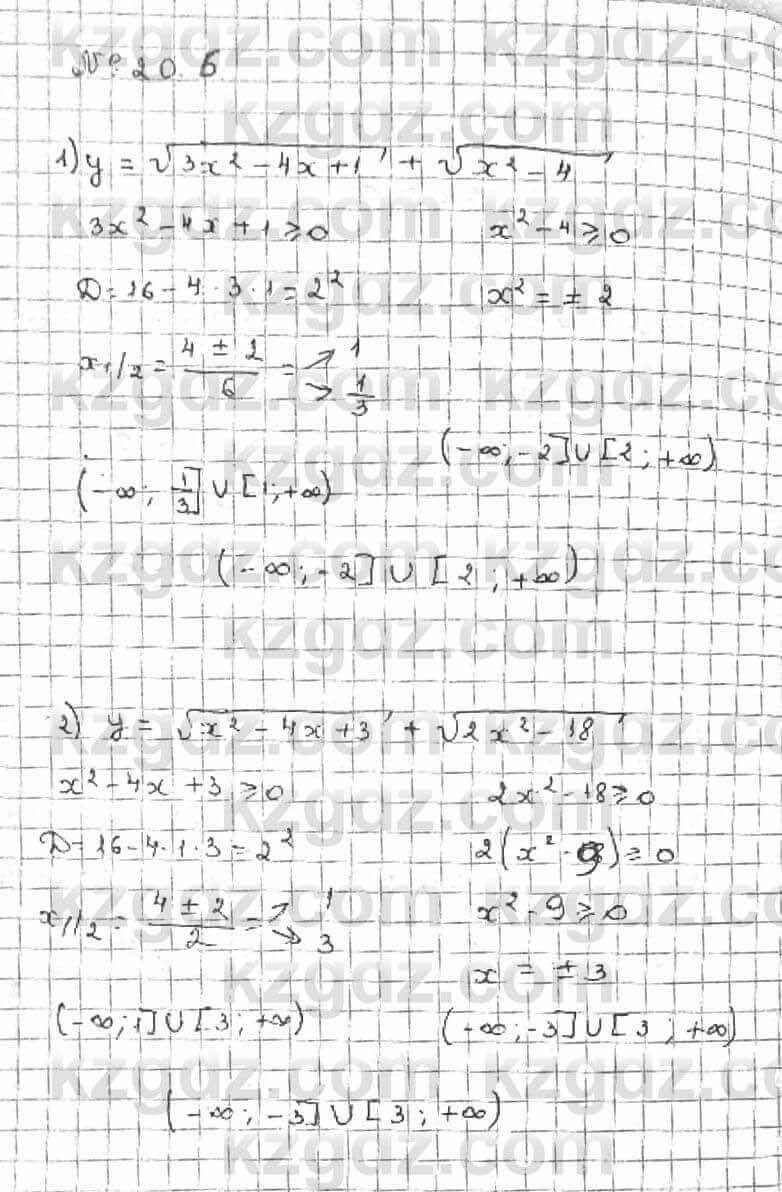 № 20.6
1) y = √(3x² - 4x + 1) + √(x² - 4)
3x² - 4x + 1 ≥ 0
x² - 4 ≥ 0
D = 16 - 4 · 3 · 1 = 2²
x² = ± 2
x1/2 = (4 ± 2)/6 = → 1 → 1/3
(-∞; -2] ∪ [2; +∞)
(-∞; 1/3] ∪ [1; +∞)
(-∞; -2] ∪ [2; +∞)
2) y = √(x² - 4x + 3) + √(2x² - 18)
x² - 4x + 3 ≥ 0
2x² - 18 ≥ 0
D = 16 - 4 · 1 · 3 = 2²
2(x² - 9) ≥ 0
x1/2 = (4 ± 2)/2 = → 1 → 3
x² - 9 ≥ 0
x = ± 3
(-∞; 1] ∪ [3; +∞)
(+∞; -3] ∪ [3; +∞)
(-∞; -3] ∪ [3; +∞)
kzgdz.com